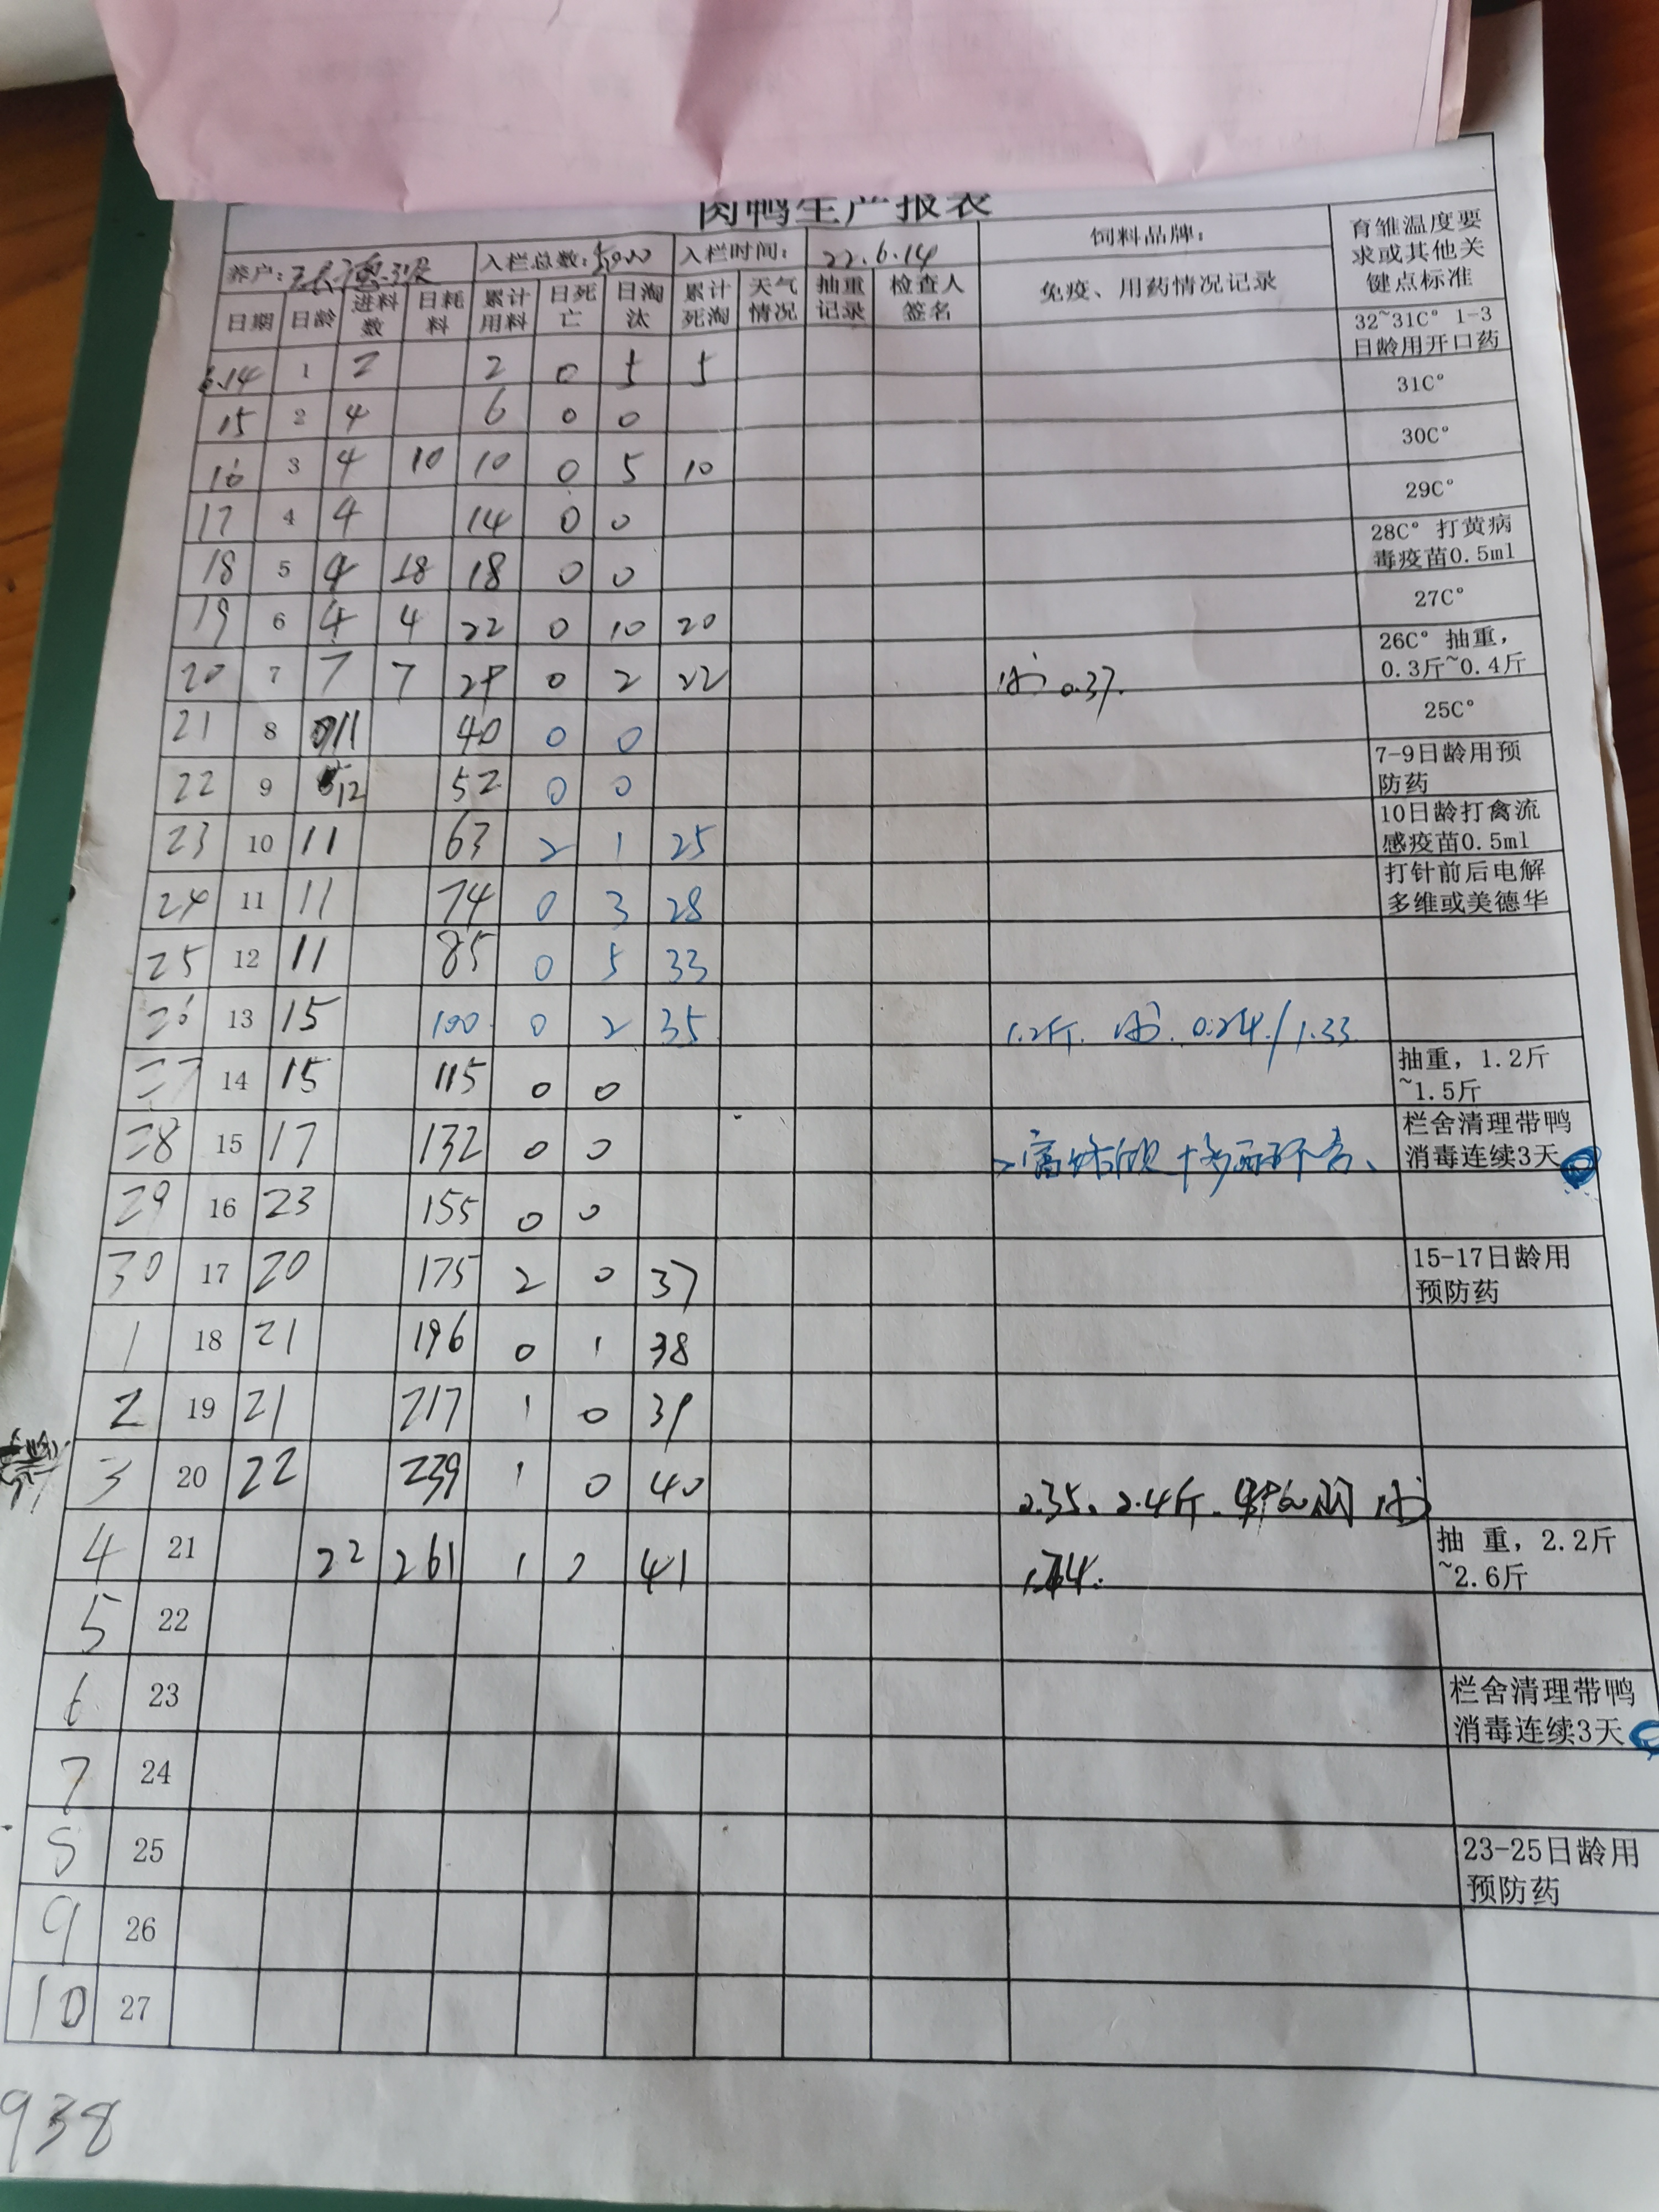 肉鸭生产报表
养户: 入栏总数: 入栏时间: 22.6.14 饲料品牌: 育雏温度要求或其他关键点标准
日期 日龄 进料数 日耗料 累计用料 日死亡 日淘汰 累计死淘 天气情况 抽重记录 检查人签名 免疫、用药情况记录
6.14 1 2 2 0 5 5 32~31C° 1-3日龄用开口药
15 2 4 6 0 0 31C°
16 3 4 10 10 0 5 10 30C°
17 4 4 14 0 0 29C°
18 5 4 18 18 0 0 28C° 打黄病毒疫苗0.5ml
19 6 4 4 22 0 10 20 27C°
20 7 7 7 29 0 2 22 0.37. 26C° 抽重,0.3斤~0.4斤
21 8 11 40 0 0 25C°
22 9 12 52 0 0 7-9日龄用预防药
23 10 11 63 2 1 25 10日龄打禽流感疫苗0.5ml
24 11 11 74 0 3 28 打针前后电解多维或美德华
25 12 11 85 0 5 33
26 13 15 100 0 2 35 1.2斤. 0.24/1.33
27 14 15 115 0 0 抽重, 1.2斤~1.5斤
28 15 17 132 0 0 栏舍清理带鸭消毒连续3天
29 16 23 155 0 0
30 17 20 175 2 0 37 15-17日龄用预防药
1 18 21 196 0 1 38
2 19 21 217 1 0 39
3 20 22 239 1 0 40 2.35、2.4斤.
4 21 22 261 1 0 41 抽 重, 2.2斤~2.6斤
5 22
6 23 栏舍清理带鸭消毒连续3天
7 24
8 25 23-25日龄用预防药
9 26
10 27
938